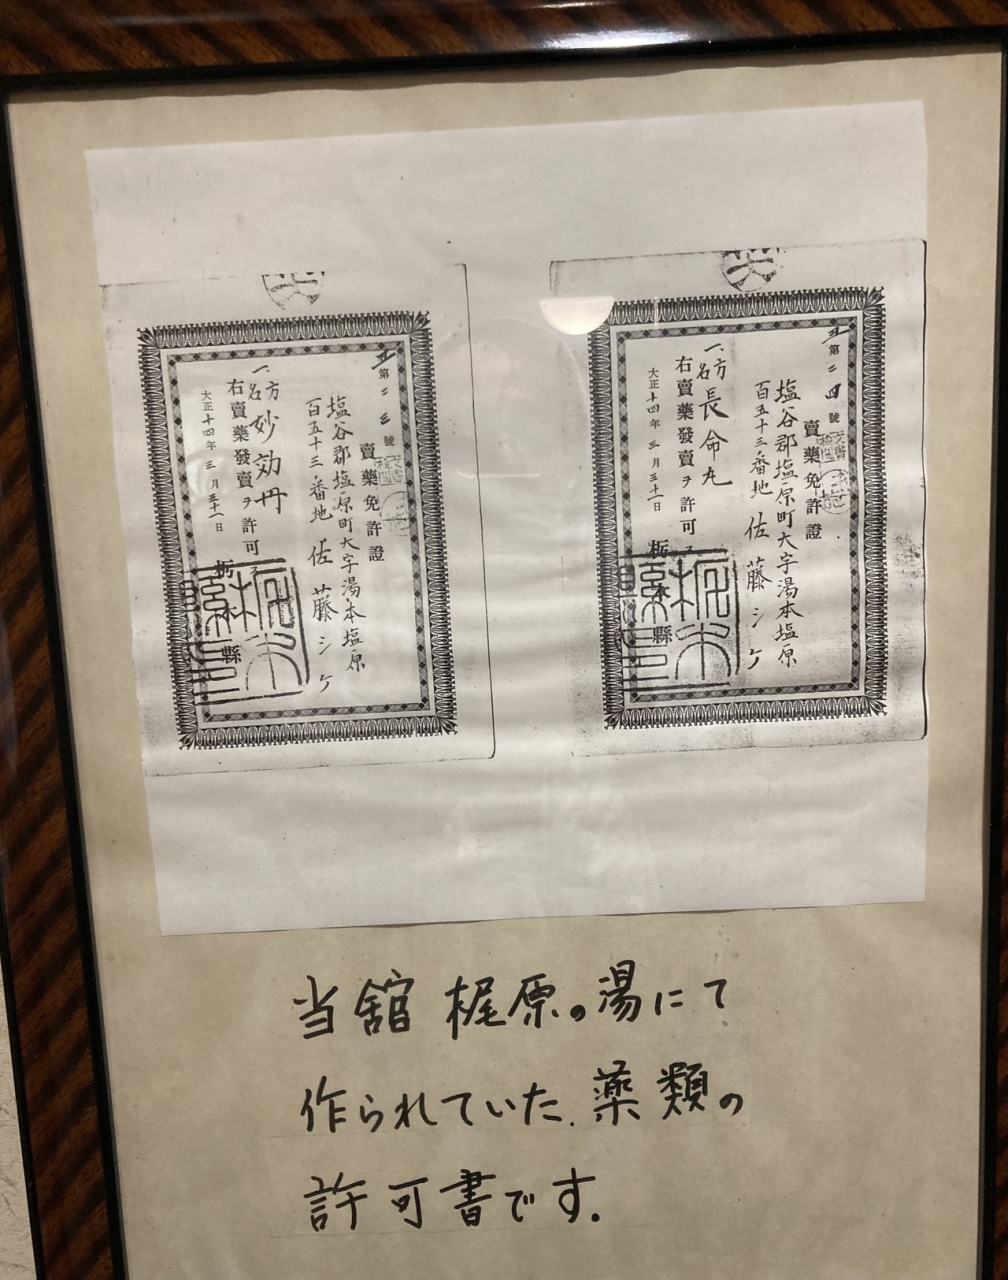 第二四號
賣藥免許證
塩谷郡塩原町大字湯本塩原
百五十三番地 佐藤シケ
一、方名 長命丸
右賣藥發賣ヲ許可ス
大正十四年三月三十一日
栃木縣
第二三號
賣藥免許證
塩谷郡塩原町大字湯本塩原
百五十三番地 佐藤シケ
一、方名 妙効丹
右賣藥發賣ヲ許可ス
大正十四年三月三十一日
栃木縣
当舘 梶原の湯にて
作られていた、薬類の
許可書です。